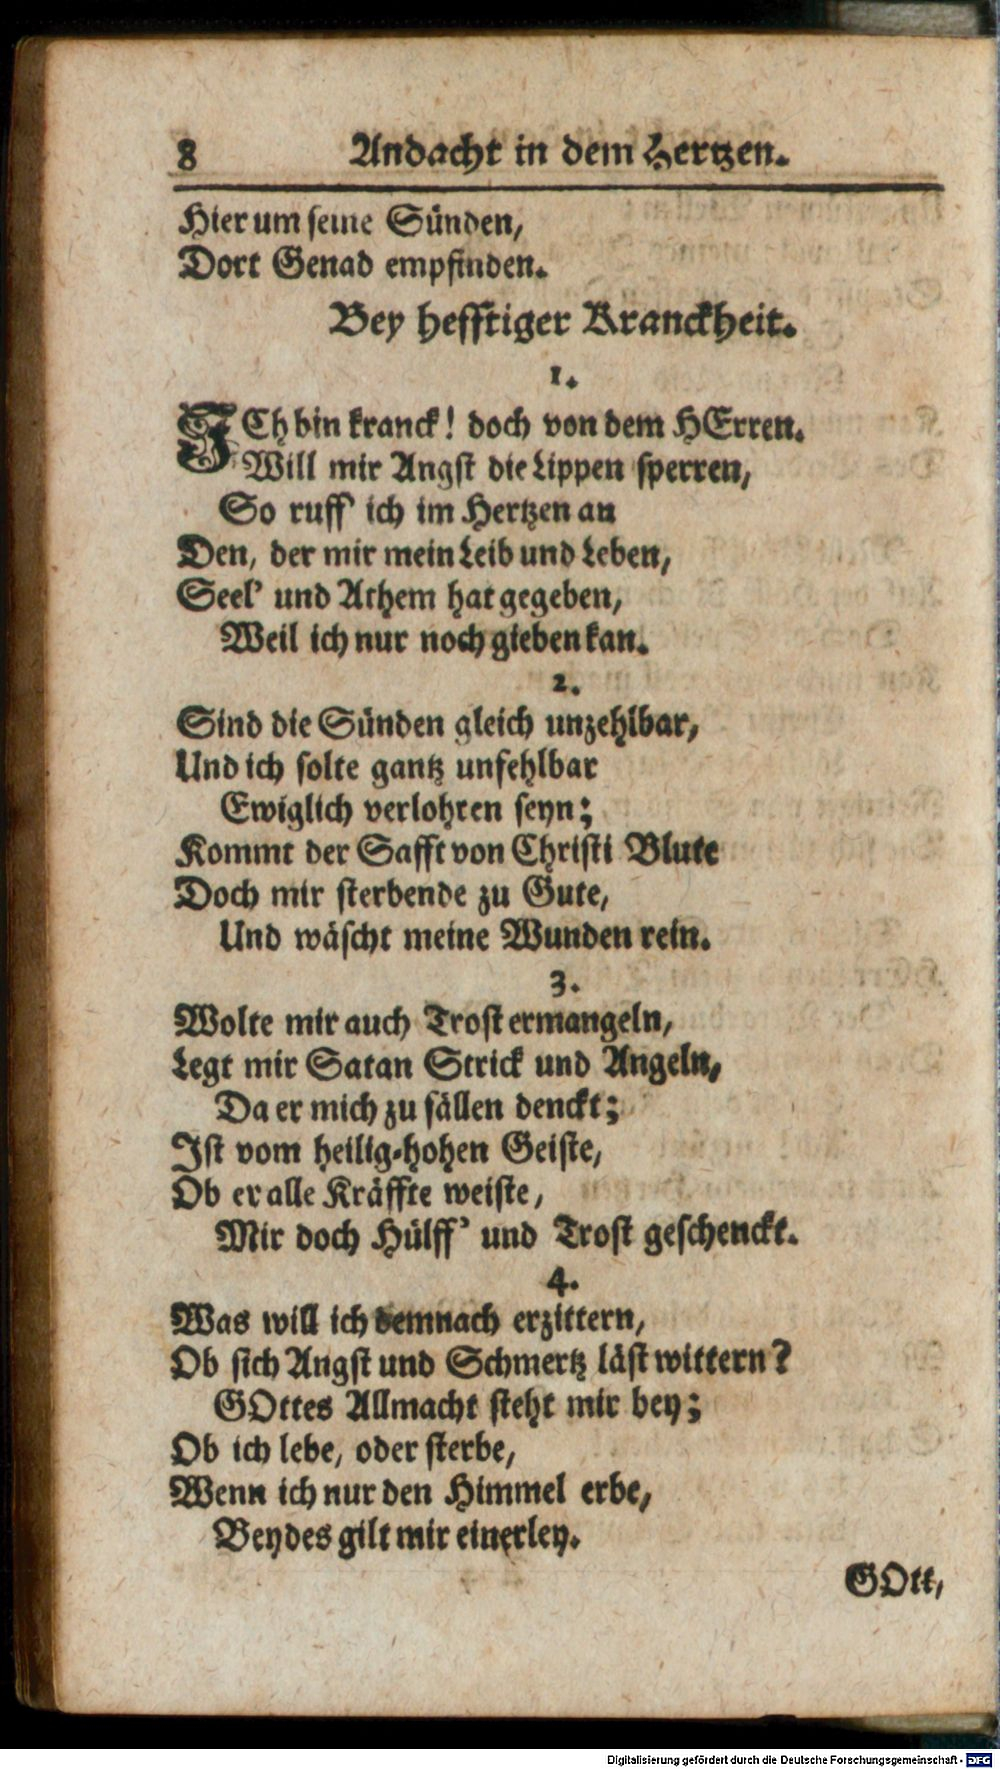 8 Andacht in dem Hertzen.
Hier um seine Sünden,
Dort Genad empfinden.
Bey hefftiger Kranckheit.
1.
ICh bin kranck! doch von dem HErren.
Will mir Angst die Lippen sperren,
So ruff' ich im Hertzen an
Den, der mir mein Leib und Leben,
Seel' und Athem hat gegeben,
Weil ich nur noch gieben kan.
2.
Sind die Sünden gleich unzehlbar,
Und ich solte gantz unfehlbar
Ewiglich verlohren seyn;
Kommt der Safft von Christi Blute
Doch mir sterbende zu Gute,
Und wäscht meine Wunden rein.
3.
Wolte mir auch Trost ermangeln,
Legt mir Satan Strick und Angeln,
Da er mich zu fällen denckt;
Ist vom heilig-hohen Geiste,
Ob er alle Kräffte weiste,
Mir doch Hülff' und Trost geschenckt.
4.
Was will ich demnach erzittern,
Ob sich Angst und Schmertz läst wittern?
GOttes Allmacht steht mir bey;
Ob ich lebe, oder sterbe,
Wenn ich nur den Himmel erbe,
Beydes gilt mir einerley.
GOtt,
Digitalisierung gefördert durch die Deutsche Forschungsgemeinschaft - DFG